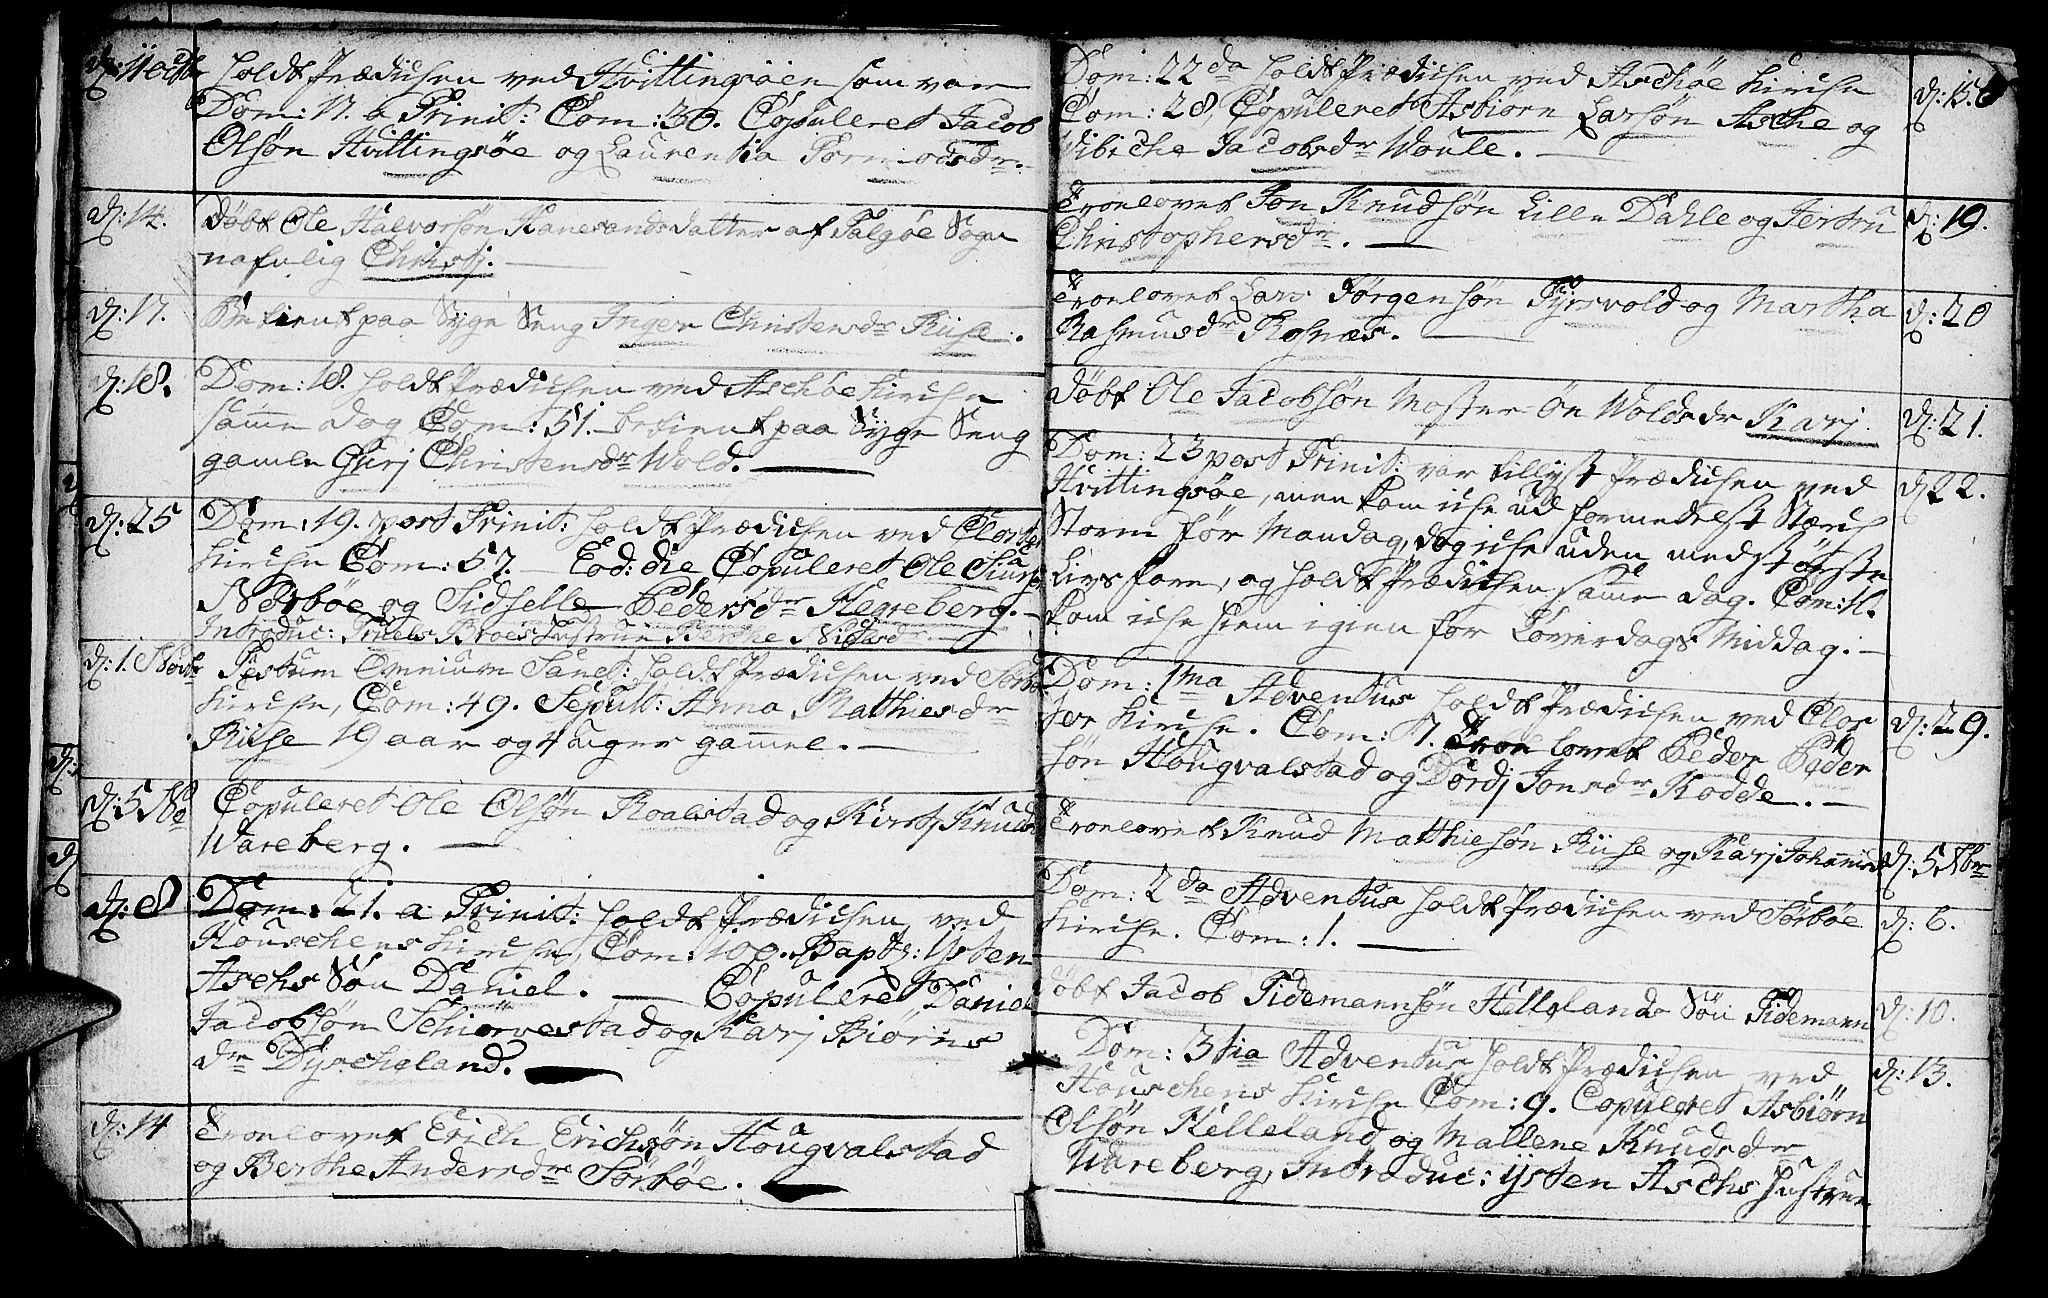 d: 11 octb holdt Prædichen ved Hvittingsöen som var
Dom: 17. a Trinit: Com: 30. Copuleret Jacob
Olsön Hvittingsöe og Laurentia Tormodsdr.
d: 14. döbt Ole Halvorsön Hanesands datter af Talgöe Sogn
nafnlig Christj.
d: 17. Betient paa Syge Seng Inger Christensdr Riise.
d: 18. Dom: 18. holdt Prædichen ved Aschöe Kirche
samme dag Com: 51. betient paa Syge Seng
gamle Gurj Christensdr Wold.
d: 25 Dom: 19. post Trinit: holdt Prædichen ved Closter
Kirche Com: 57. Eod: die Copuleret Ole
Nörböe og Sidselle Pedersdr Hegreberg.
Introduc: Broes Hustrue Berthe
d: 1. Novbr Festum Omnium Sanct: holdt Prædichen ved Sörbö
Kirche, Com: 49. Sepult: Anna Mathiesdr
Riise 19 aar og 4 uger gammel.
d: 5 Copuleret Ole Olsön Roalstad og Kirstj Knuds
Wareberg.
d: 8 Dom: 21. a Trinit: holdt Prædichen ved
Houschens Kirche, Com: 100. Bapt: Ysten
Aschs Sön Daniel. Copuleret Daniel
Jacobsön Schiörvestad og Karj Biörns
dr Dyscheland.
d: 14 Troelovet Erich Erichsön Hougvalstad
og Berthe Andersdr Sörböe.
Dom: 22da holdt Prædichen ved Aschöe Kirche d: 15.
Com: 28, Copuleret Asbiörn Larsön Asche og
Wibiche Jacobsdr Woule.
Troelovet Jon Knudsön Lille Dahle og Jertru d: 19.
Christophersdr.
Troelovet Lars Jörgensön Fyrsvold og Martha d: 20
Rasmusdr Rosnæs.
döbt Ole Jacobsön Moster Öe Wolds dr Karj. d: 21.
Dom: 23 post Trinit: var tillyst Prædichen ved
Hvittingsöe, men kom iche ud formedelst Stærch d: 22.
Storm för Mandag, dog iche uden med störste
Livs fare, og holdt Prædichen samme dag. Com: 11.
kom iche hiem igien for Löverdags Middag.
Dom: 1ma Adventus holdt Prædichen ved Clos
ter Kirche. Com: 7. Troelovet Peder Peder d: 29.
sön Hougvalstad og Dordj Jonsdr Kodde.
Troelovet Knud Matthiesön Riise og Karj Johannis d: 5 Xbr
Dom: 2da Adventus holdt Prædichen ved Sörböe d: 6.
Kirche. Com: 1.
döbt Jacob Tidemannsön Hellelands Sön Tidemann d: 10.
Dom: 3tia Adventus holdt Prædichen ved d: 13.
Houschens Kirche Com: 9. Copuleret Asbiörn
Olsön Helleland og Mallene Knudsdr
Wareberg, Introduc: Ysten Aschs Hustrue